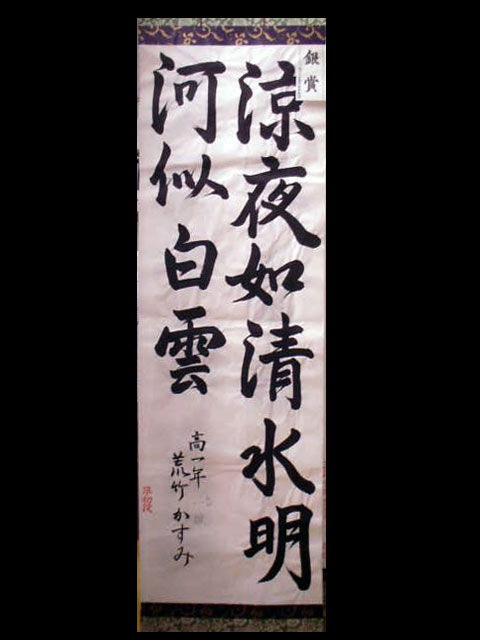 銀賞
涼夜如清水明
河似白雲
高一年
荒竹かすみ
準初段